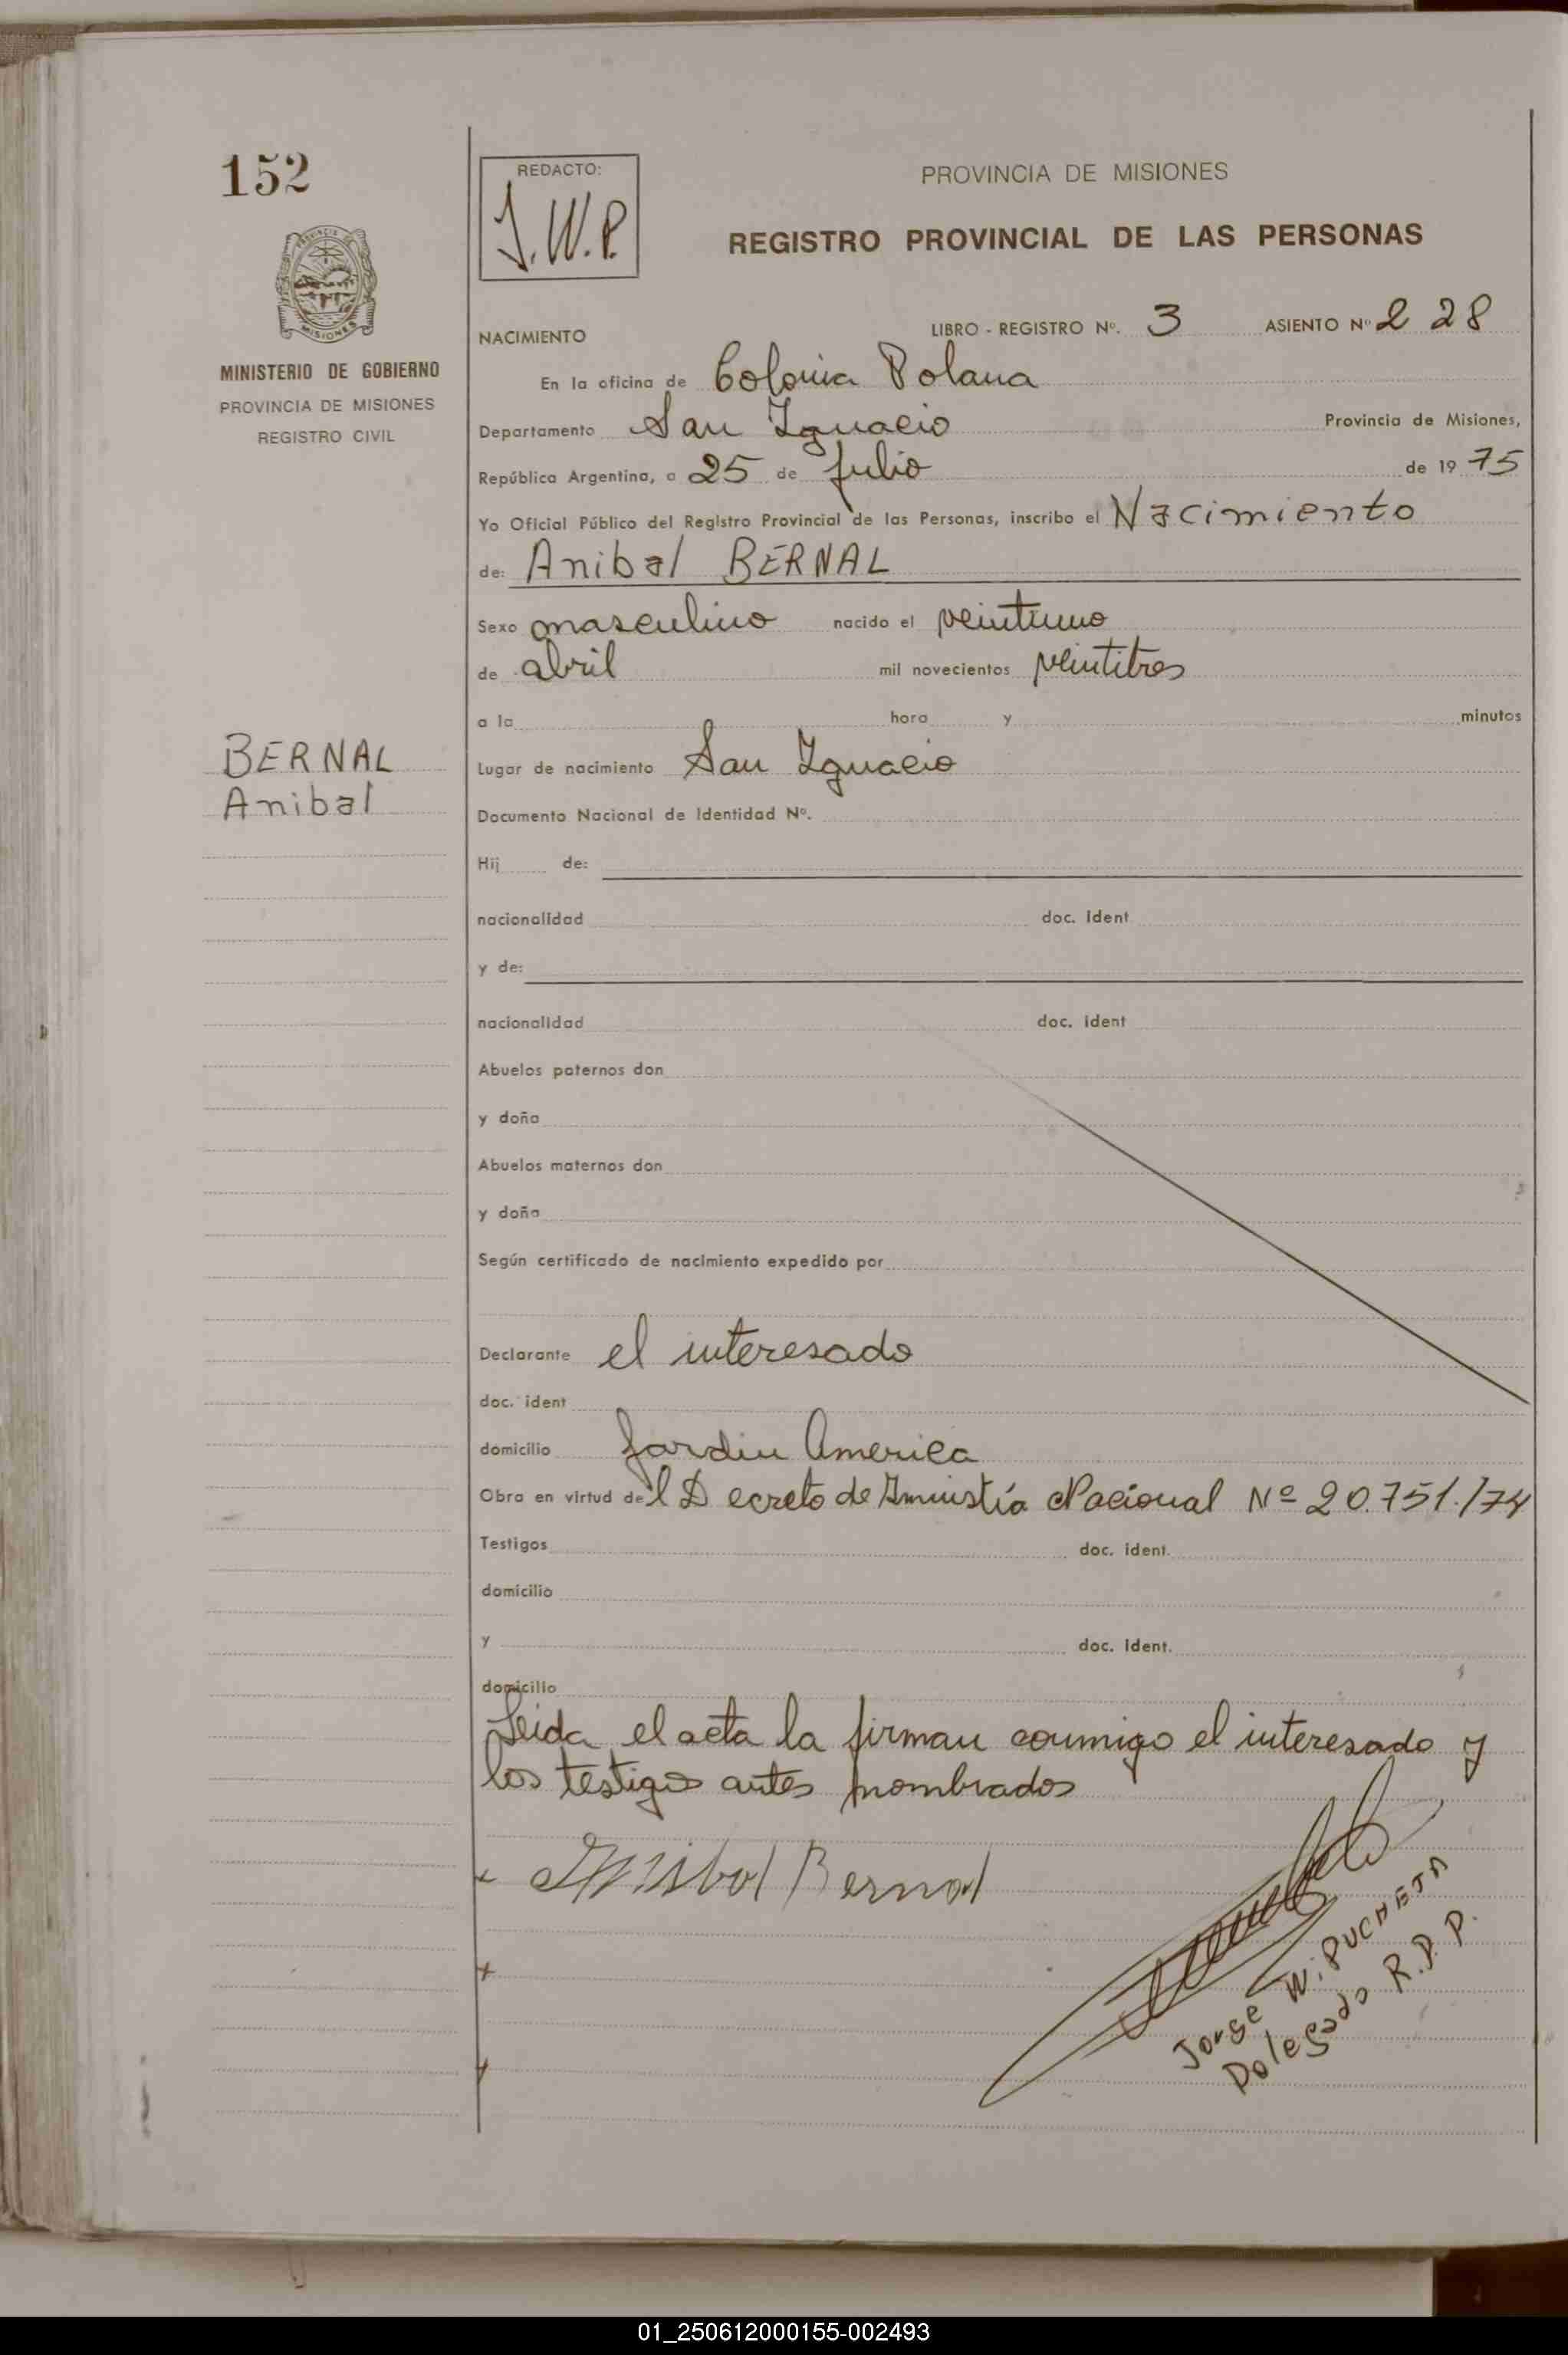 152
REDACTO:
J.W.P.
PROVINCIA DE MISIONES
REGISTRO PROVINCIAL DE LAS PERSONAS
PROVINCIA DE
MISIONES
MINISTERIO DE GOBIERNO
PROVINCIA DE MISIONES
REGISTRO CIVIL
NACIMIENTO LIBRO - REGISTRO Nº. 3 ASIENTO Nº 228
En la oficina de Colonia Polana
Departamento San Ignacio Provincia de Misiones,
República Argentina, a 25 de Julio de 1975
Yo Oficial Público del Registro Provincial de las Personas, inscribo el Nacimiento
de: Anibal BERNAL
Sexo masculino nacido el veintiuno
de abril mil novecientos veintitres
a la hora y minutos
BERNAL
Anibal
Lugar de nacimiento San Ignacio
Documento Nacional de Identidad Nº.
Hij de:
nacionalidad doc. ident
y de:
nacionalidad doc. ident
Abuelos paternos don
y doña
Abuelos maternos don
y doña
Según certificado de nacimiento expedido por
Declarante el interesado
doc. ident
domicilio Jardin America
Obra en virtud del Decreto de Amnistía Nacional Nº 20.751./74
Testigos doc. ident.
domicilio
y doc. ident.
domicilio
Leida el acta la firman conmigo el interesado y
los testigos antes nombrados
Anibal Bernal
Jorge W. PUCHETA
Delegado R.P.P.
01_250612000155-002493